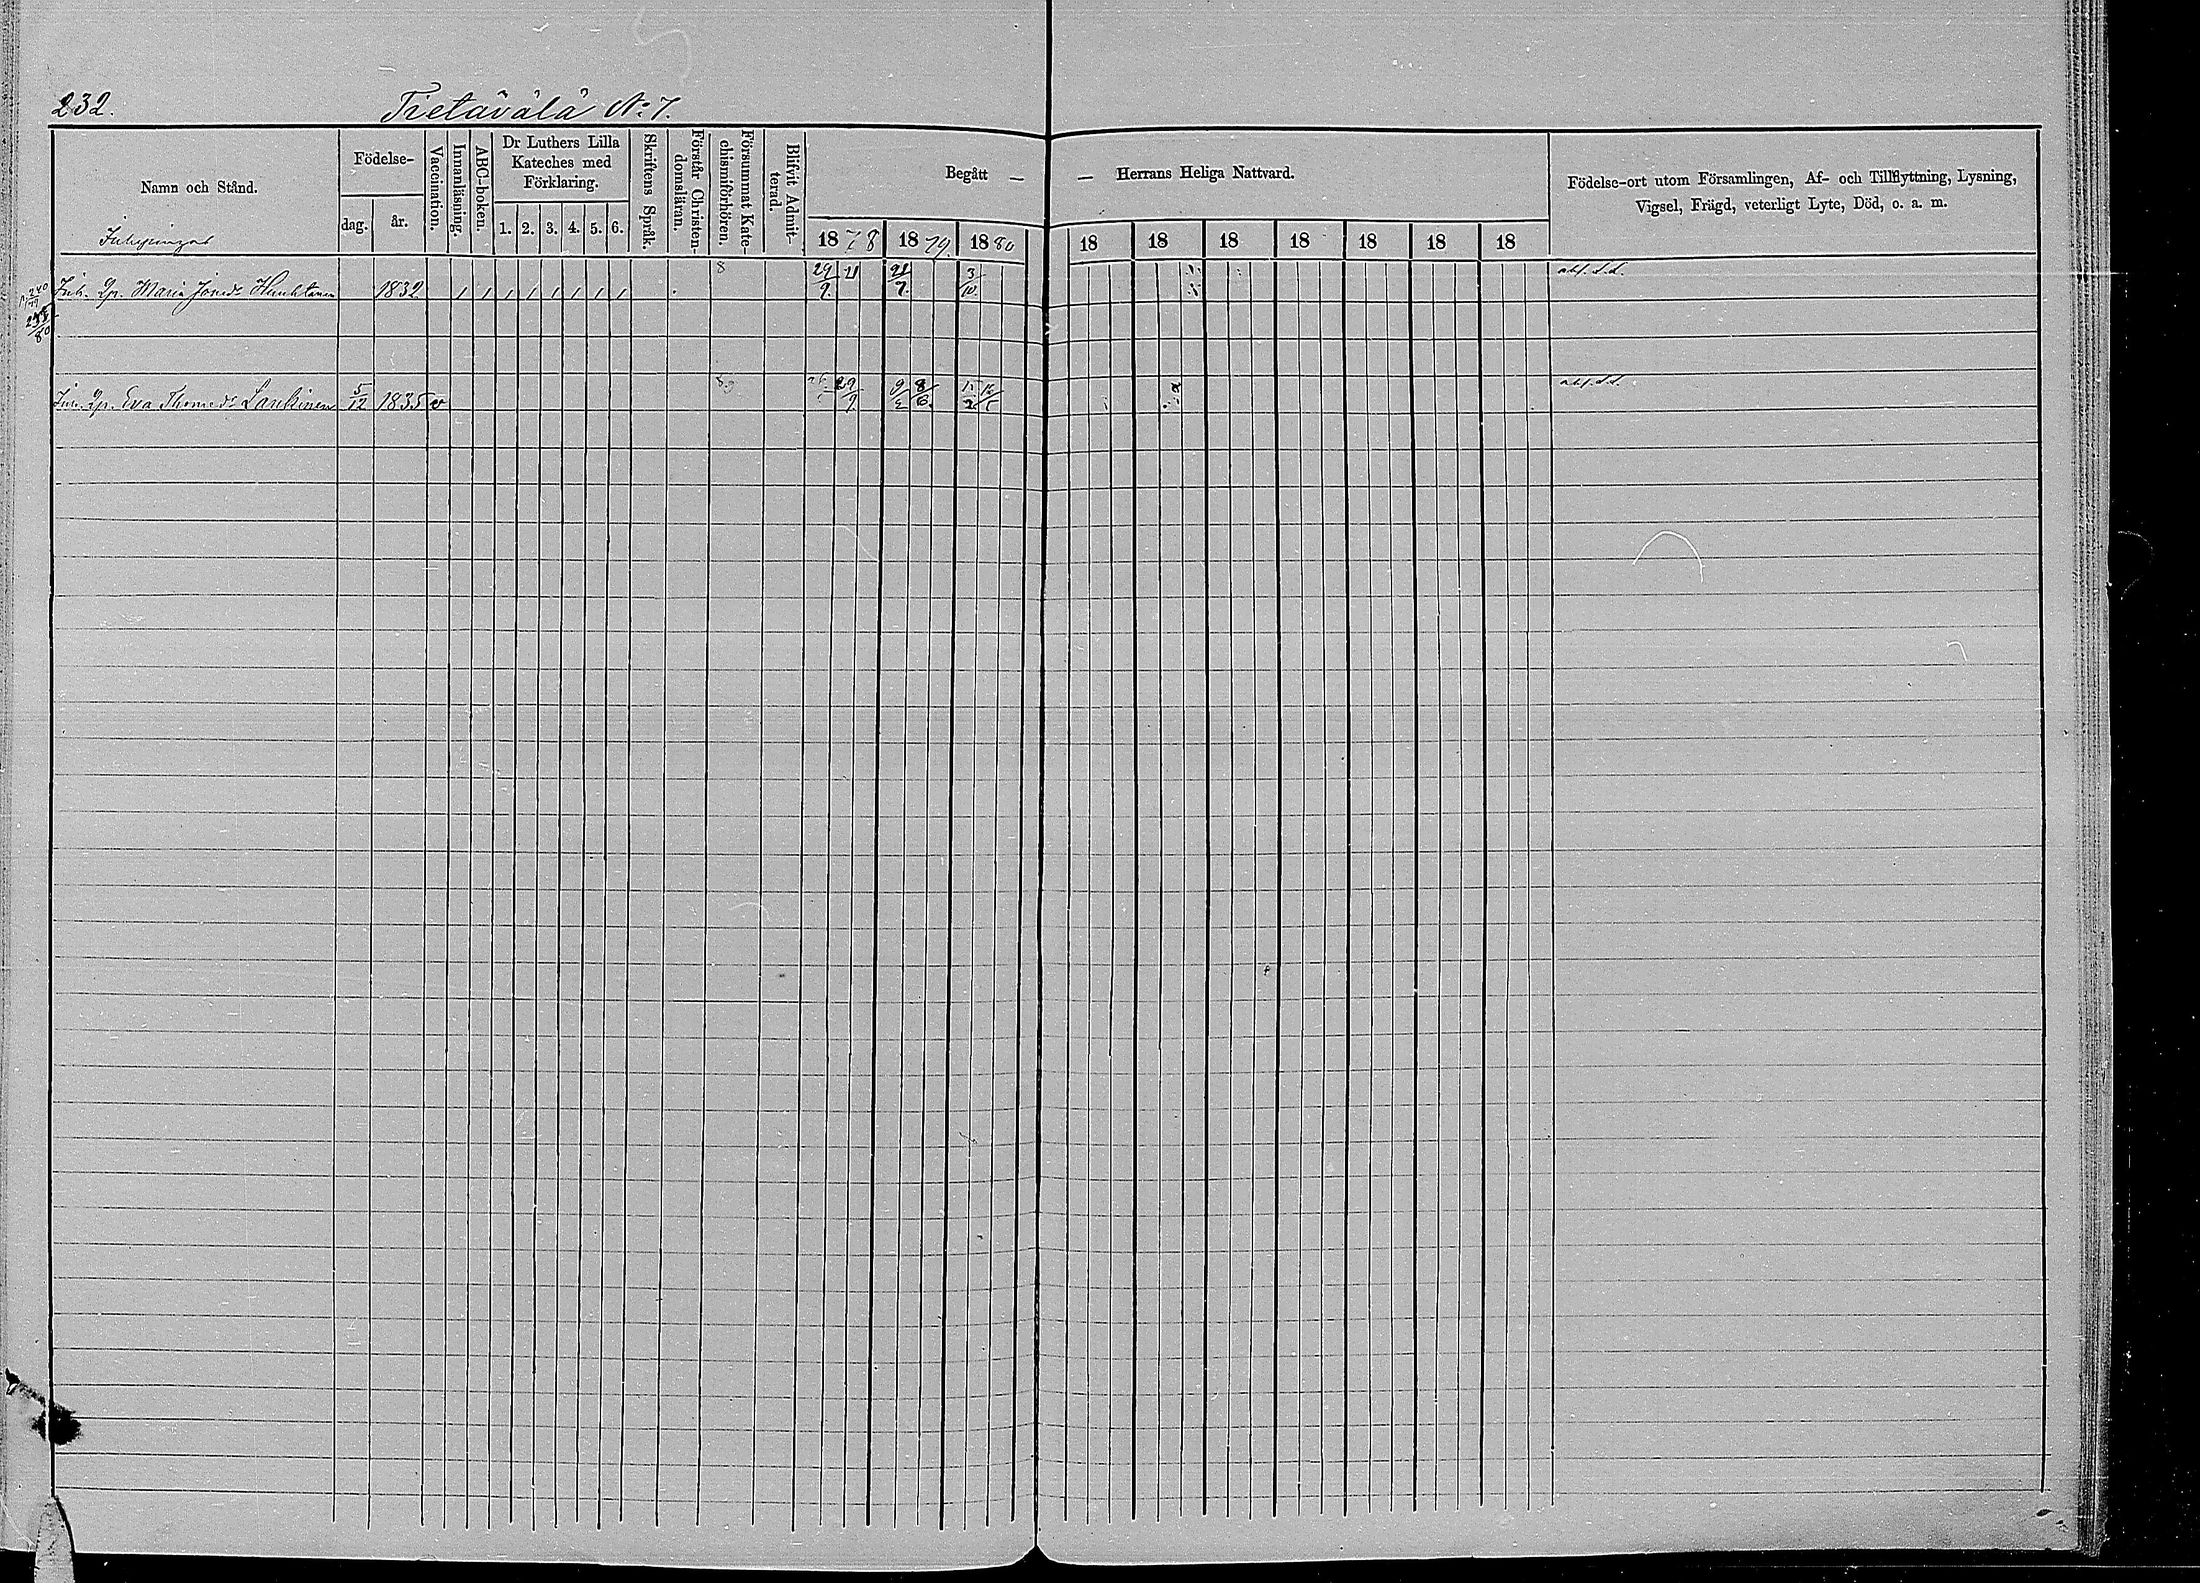 232. Tietäväla N:7.
Namn och Stånd.
Födelse-
dag. år.
Vaccination.
Innanläsning.
ABC-boken.
Dr Luthers Lilla
Kateches med
Förklaring.
1. 2. 3. 4. 5. 6.
Skriftens Språk.
Förstår Christen-
domsläran.
Försummat Kate-
chismiförhören.
Blifvit Admit-
terad.
Begått — — Herrans Heliga Nattvard.
1878 1879. 1880 18 18 18 18 18 18 18
Födelse-ort utom Församlingen, Af- och Tillflyttning, Lysning,
Vigsel, Frägd, veterligt Lyte, Död, o. a. m.
Inhysingar
Inh. Maria Jonsd:r 1832 8 29/9 21 3/10
Eva Thomasd:r Laukinen 5/12 1835 v 29/9 9/2 8/6